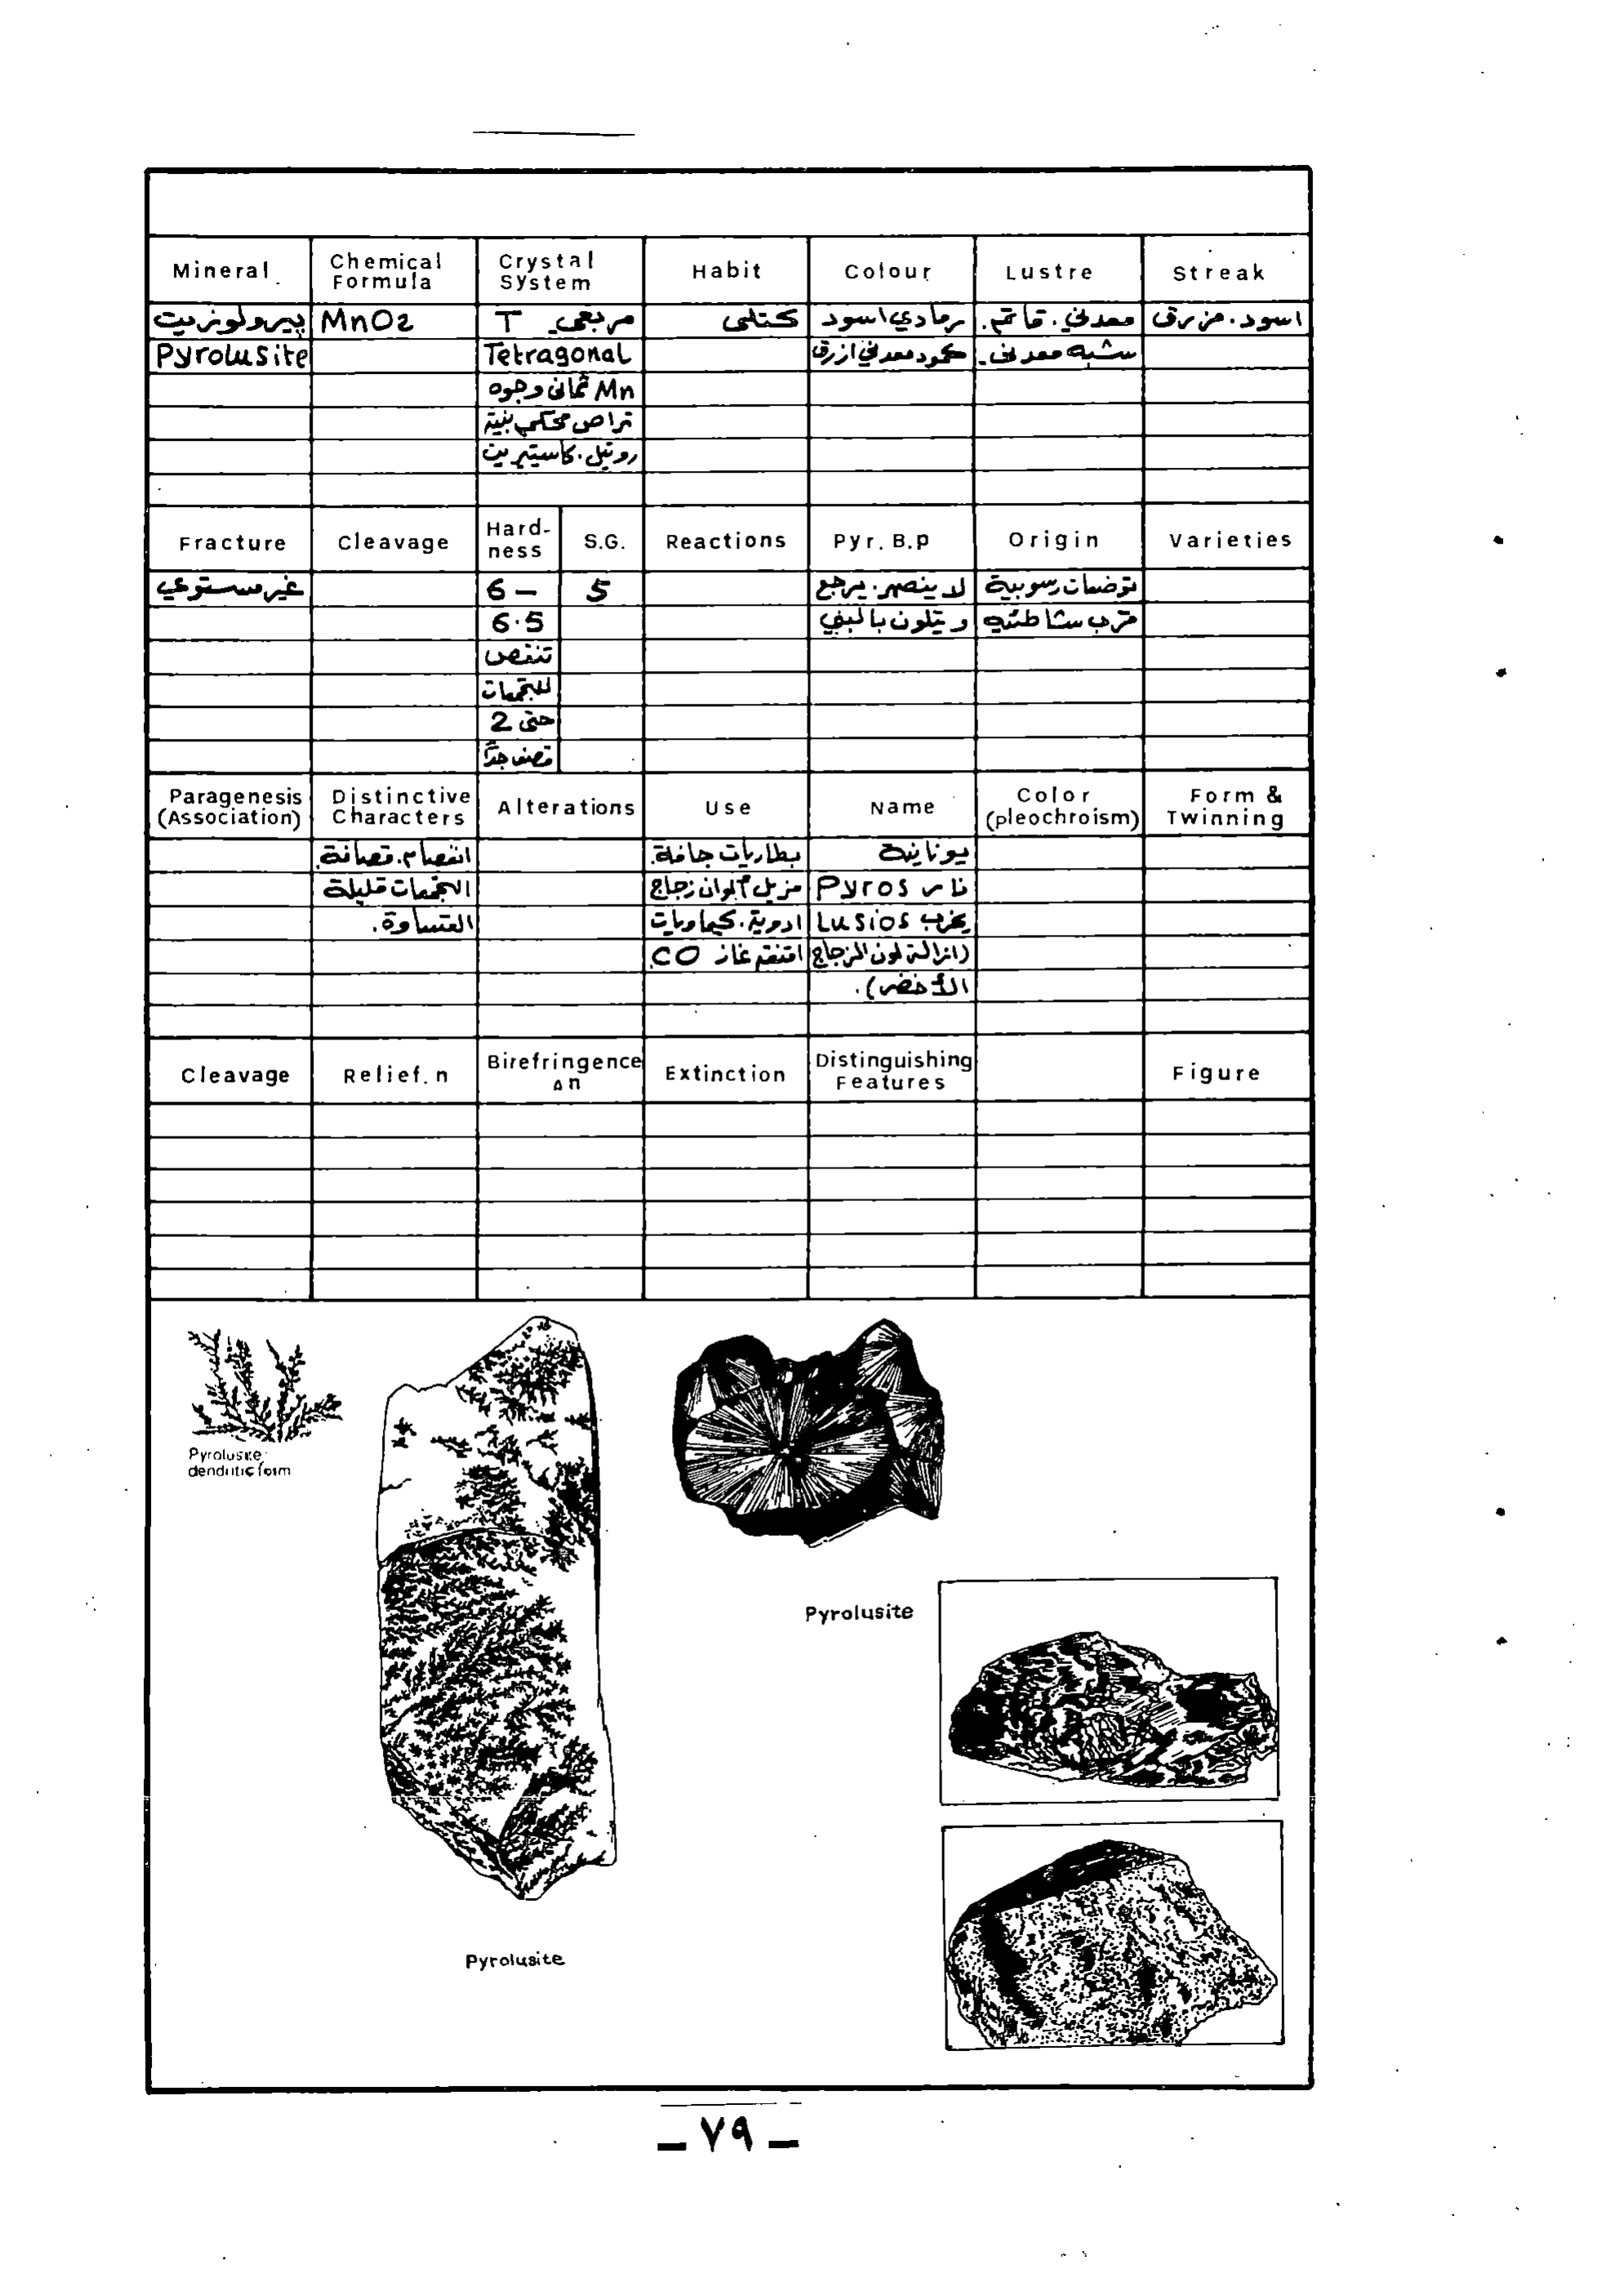 Mineral
Chemical Formula
Crystal System
Habit
Colour
Lustre
Streak
بيرولوزيت
MnO2
مربعي T
كتلي
رمادي اسود
معدني. قاتم.
اسود. مزرق
Pyrolusite
Tetragonal
كمود معدني ازرق
شبه معدني.
Mn ثماني وجوه
تراص محكم بنية
روتيل. كاسيتيريت
Fracture
Cleavage
Hard-ness
S.G.
Reactions
Pyr. B.p
Origin
Varieties
غير مستوي
6 –
5
لا ينصهر. يرجع
توضعات رسوبية
6.5
و يتلون بالبني
قرب شاطئيه
تنقص
للتجمعات
حتى 2
قصف جداً
Paragenesis (Association)
Distinctive Characters
Alterations
Use
Name
Color (pleochroism)
Form & Twinning
انفصام. قصافة.
بطاريات جافة.
يونانية
التجمعات قليلة
مزيل ألوان زجاج
نار Pyros
القساوة.
ادوية. كيماويات
يخرب Lusios
غاز CO
(ازالة لون الزجاج
الأخضر).
Cleavage
Relief. n
Birefringence Δn
Extinction
Distinguishing Features
Figure
Pyrolusite
dendritic form
Pyrolusite
Pyrolusite
– ٧٩ –